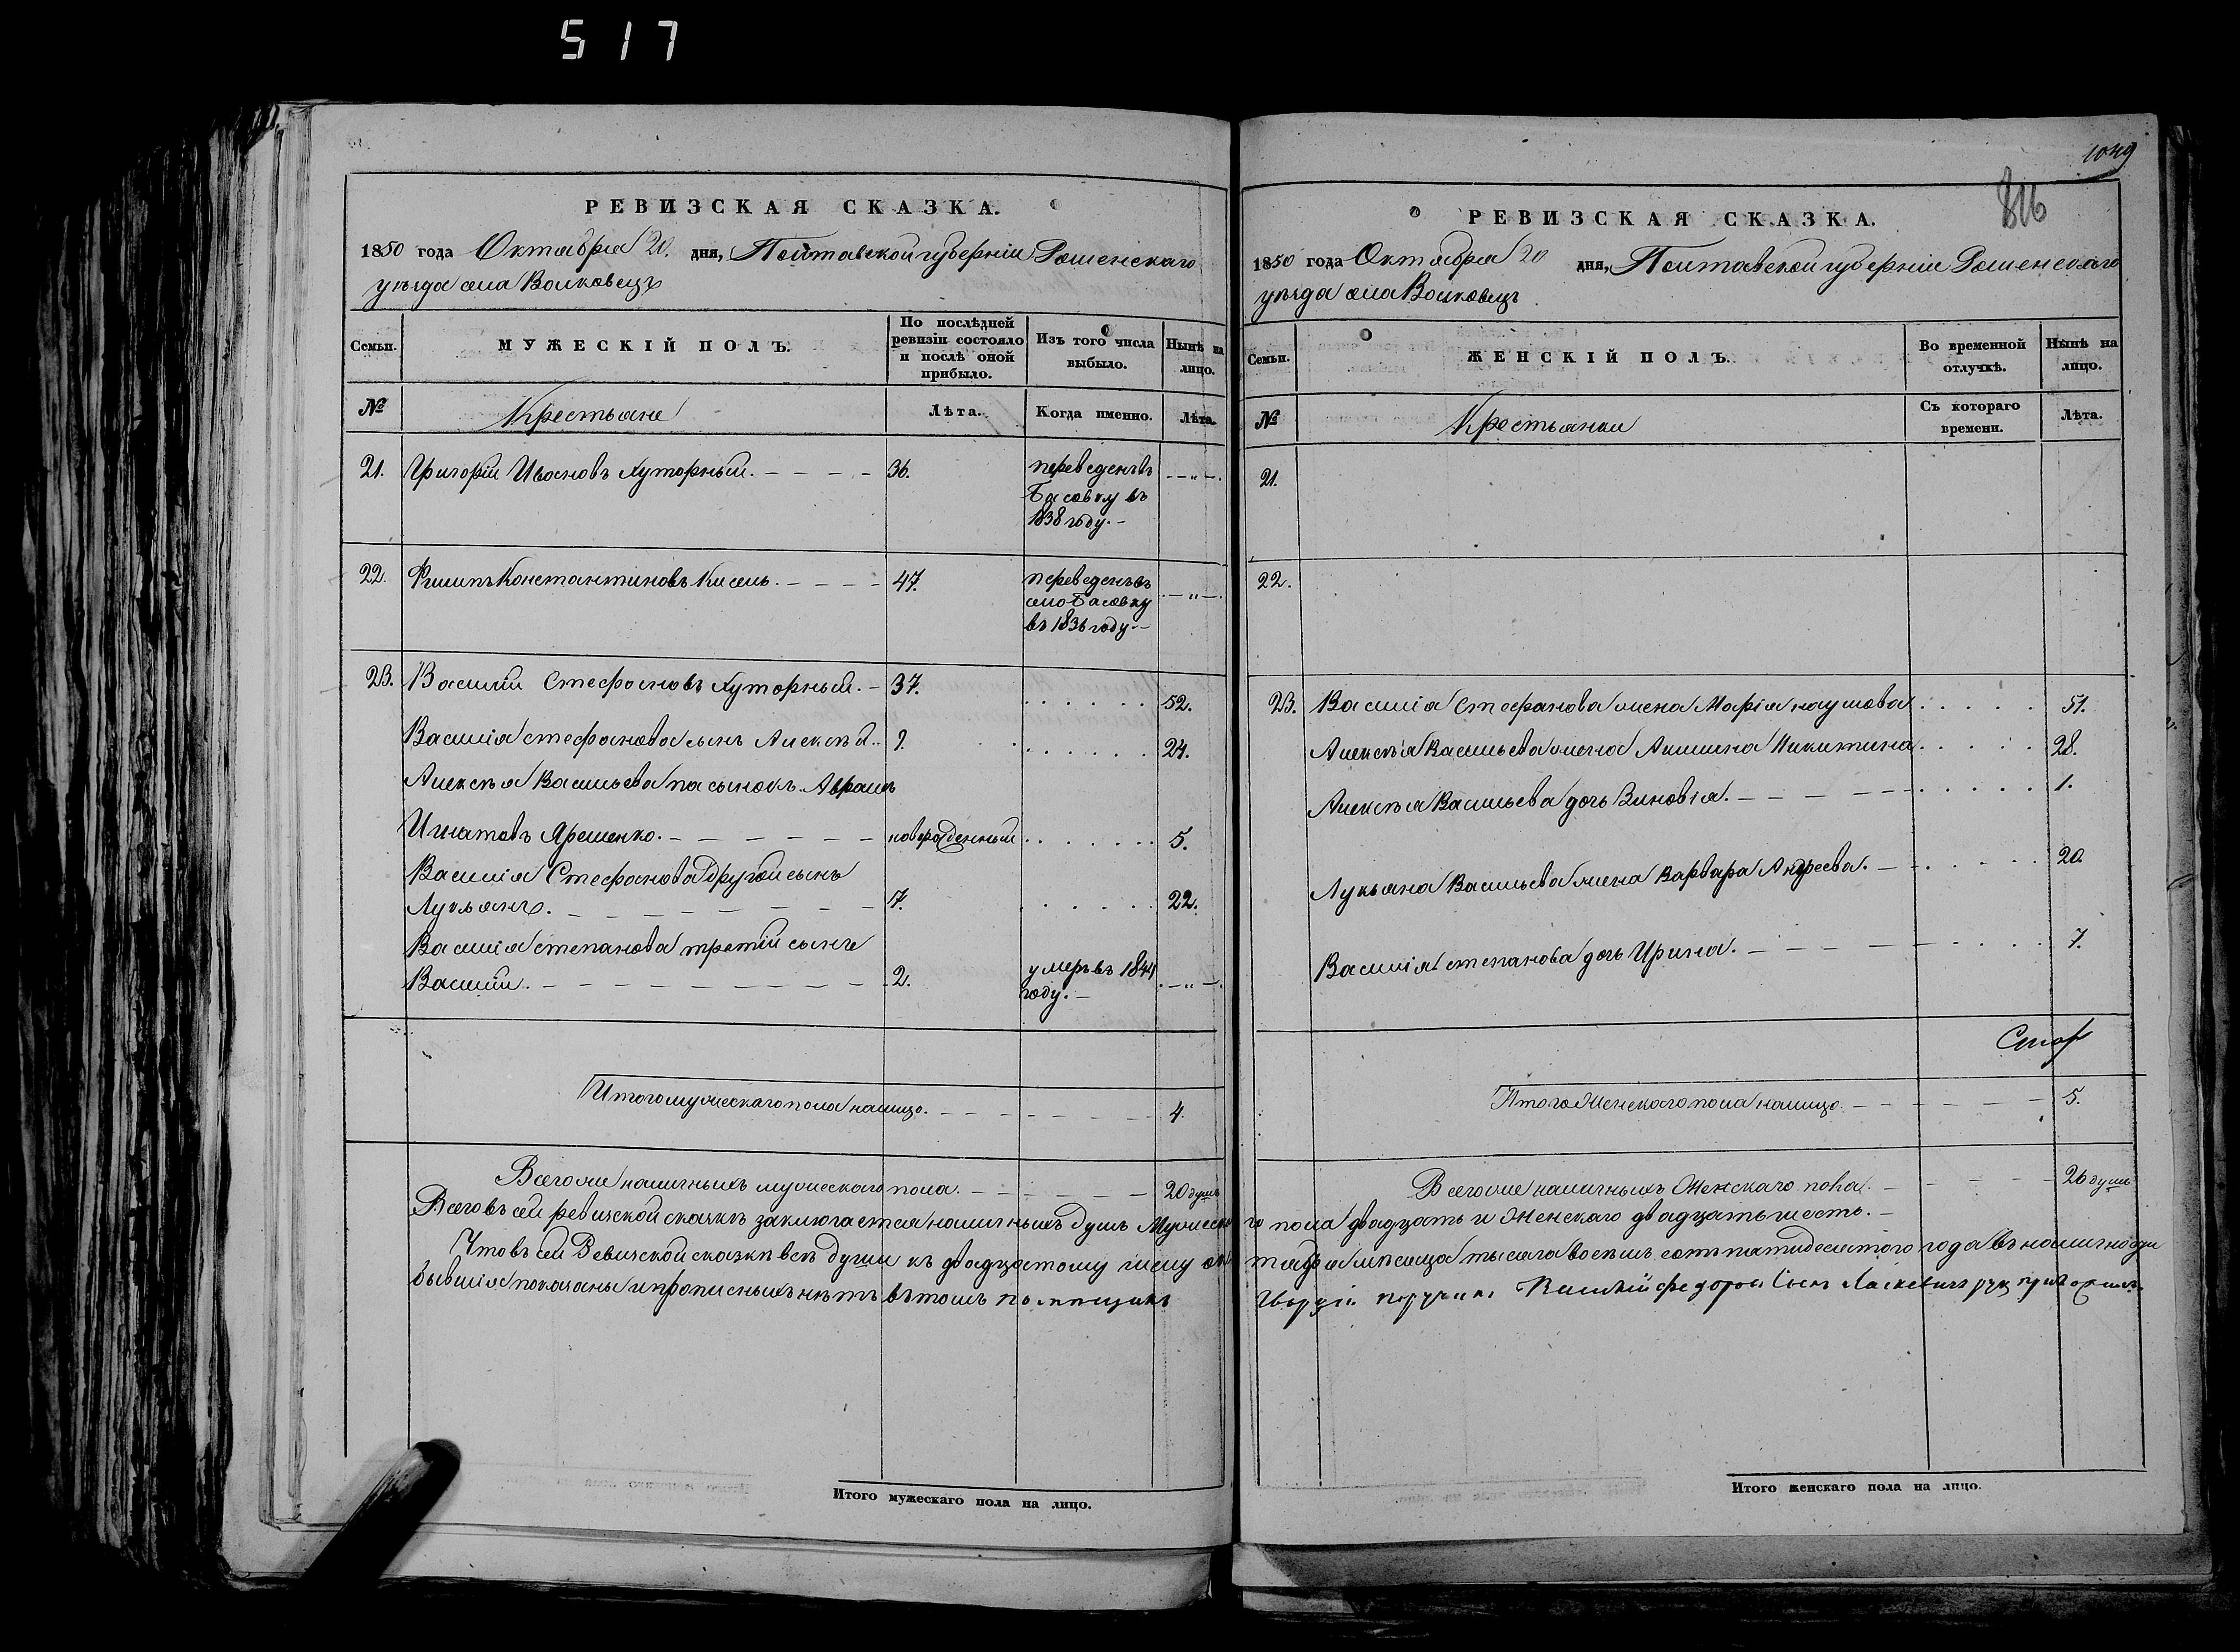 517
РЕВИЗСКАЯ СКАЗКА.
1850 года Октября 20. дня, Полтавской губерніи Роменскаго
уѣзда села Волковецъ
Семьи.
МУЖЕСКІЙ ПОЛЪ.
По послѣдней ревизіи состояло и послѣ оной прибыло.
Изъ того числа выбыло.
Нынѣ на лицо.
№
Крестьяне
Лѣта.
Когда именно.
Лѣта.
21. Григорій Ивановъ Хуторный. 36. переведенъ въ
Басовку въ
1838 году.
22. Филипъ Константиновъ Кисель. 47. переведенъ въ
село Басовку
въ 1836 году.
23. Василій Стефановъ Хуторный. 37. 52.
Василія Стефанова сынъ Алексѣй. 9. 24.
Алексѣя Васильева пасынокъ Аврамъ
Игнатовъ Ярешенко. новорожденный 5.
Василія Стефанова другой сынъ
Лукьянъ. 7. 22.
Василія Степанова третій сынъ
Василій. 2. умеръ въ 1844
году.
Итого мужескаго пола налицо. 4.
Всего же наличныхъ мужескаго пола. 20 душъ
Всего въ сей ревизской сказкѣ заключается наличныхъ душъ Мужеска
Что въ сей Ревизской сказкѣ всѣ души къ двадцатому числу ок
бывшія показаны и прописныхъ нѣтъ въ томъ помѣщикъ
Итого мужескаго пола на лицо.
1049
816
РЕВИЗСКАЯ СКАЗКА.
1850 года Октября 20 дня, Полтавской губерніи Роменскаго
уѣзда села Волковецъ
Семьи.
ЖЕНСКІЙ ПОЛЪ.
Во временной отлучкѣ.
Нынѣ на лицо.
№
Крестьянки
Съ котораго времени.
Лѣта.
21.
22.
23. Василія Стефанова жена Марія Наумова 51.
Алексѣя Васильева жена Акилина Никитина 28.
Алексѣя Васильева дочь Зиновія. 1.
Лукьяна Васильева жена Варвара Андреева. 20.
Василія Степанова дочь Ирина. 7.
Итого Женскаго пола налицо. 5.
Всего же наличныхъ Женскаго пола. 26 душъ
го пола двадцать и Женскаго двадцать шесть.
тября мѣсяца тысяча восемь сотъ пятидесятого года въ наличности
Гвардіи поручикъ Василій Федоровъ Сынъ Ласкевичъ руку приложилъ.
Итого женскаго пола на лицо.